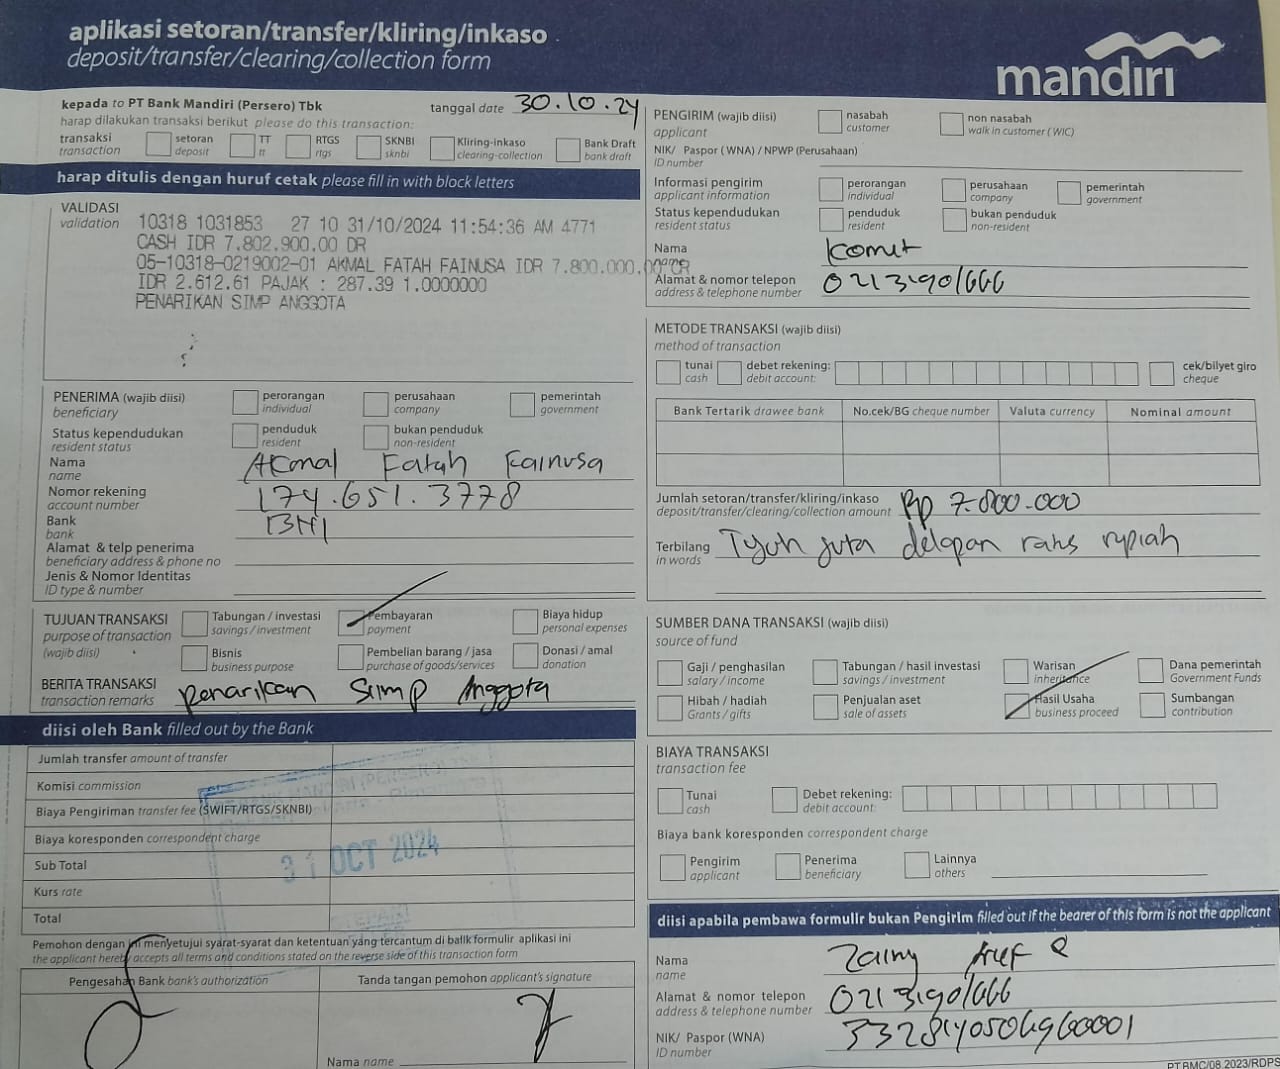 aplikasi setoran/transfer/kliring/inkaso
deposit/transfer/clearing/collection form
mandiri
kepada to PT Bank Mandiri (Persero) Tbk
tanggal date 30.10.24
harap dilakukan transaksi berikut please do this transaction:
transaksi transaction
setoran deposit
TT tt
RTGS rtgs
SKNBI sknbi
Kliring-inkaso clearing-collection
Bank Draft bank draft
harap ditulis dengan huruf cetak please fill in with block letters
VALIDASI
validation
10318 1031853 27 10 31/10/2024 11:54:36 AM 4771
CASH IDR 7.802.900.00 DR
05-10318-0219002-01 AKMAL FATAH FAINUSA IDR 7.800.000.00 CR
IDR 2.612.61 PAJAK : 287.39 1.0000000
PENARIKAN SIMP ANGGOTA
PENERIMA (wajib diisi)
beneficiary
perorangan individual
perusahaan company
pemerintah government
Status kependudukan
resident status
penduduk resident
bukan penduduk non-resident
Nama
name
Akmal Fatah Fainusa
Nomor rekening
account number
174.651.3778
Bank
bank
BNI
Alamat & telp penerima
beneficiary address & phone no
Jenis & Nomor Identitas
ID type & number
TUJUAN TRANSAKSI
purpose of transaction
(wajib diisi)
Tabungan / investasi savings / investment
Pembayaran payment
Biaya hidup personal expenses
Bisnis business purpose
Pembelian barang / jasa purchase of goods/services
Donasi / amal donation
BERITA TRANSAKSI
transaction remarks
Penarikan Simp Anggota
diisi oleh Bank filled out by the Bank
Jumlah transfer amount of transfer
Komisi commission
Biaya Pengiriman transfer fee (SWIFT/RTGS/SKNBI)
Biaya koresponden correspondent charge
Sub Total
Kurs rate
Total
31 OCT 2024
Pemohon dengan ini menyetujui syarat-syarat dan ketentuan yang tercantum di balik formulir aplikasi ini
the applicant hereby accepts all terms and conditions stated on the reverse side of this transaction form
Pengesahan Bank bank's authorization
Tanda tangan pemohon applicant's signature
Nama name
PENGIRIM (wajib diisi)
applicant
nasabah customer
non nasabah walk in customer (WIC)
NIK/ Paspor (WNA) / NPWP (Perusahaan)
ID number
Informasi pengirim
applicant information
perorangan individual
perusahaan company
pemerintah government
Status kependudukan
resident status
penduduk resident
bukan penduduk non-resident
Nama
name
Komet
Alamat & nomor telepon
address & telephone number
0213901666
METODE TRANSAKSI (wajib diisi)
method of transaction
tunai cash
debet rekening: debit account:
cek/bilyet giro cheque
Bank Tertarik drawee bank
No.cek/BG cheque number
Valuta currency
Nominal amount
Jumlah setoran/transfer/kliring/inkaso
deposit/transfer/clearing/collection amount
Rp 7.800.000
Terbilang
in words
Tujuh juta delapan ratus rupiah
SUMBER DANA TRANSAKSI (wajib diisi)
source of fund
Gaji / penghasilan salary / income
Tabungan / hasil investasi savings / investment
Warisan inheritance
Dana pemerintah Government Funds
Hibah / hadiah Grants / gifts
Penjualan aset sale of assets
Hasil Usaha business proceed
Sumbangan contribution
BIAYA TRANSAKSI
transaction fee
Tunai cash
Debet rekening: debit account:
Biaya bank koresponden correspondent charge
Pengirim applicant
Penerima beneficiary
Lainnya others
diisi apabila pembawa formulir bukan Pengirim filled out if the bearer of this form is not the applicant
Nama
name
Zainy Arief R
Alamat & nomor telepon
address & telephone number
0213901666
NIK/ Paspor (WNA)
ID number
3328140506960001
PT.BMC/08.2023/RDPS